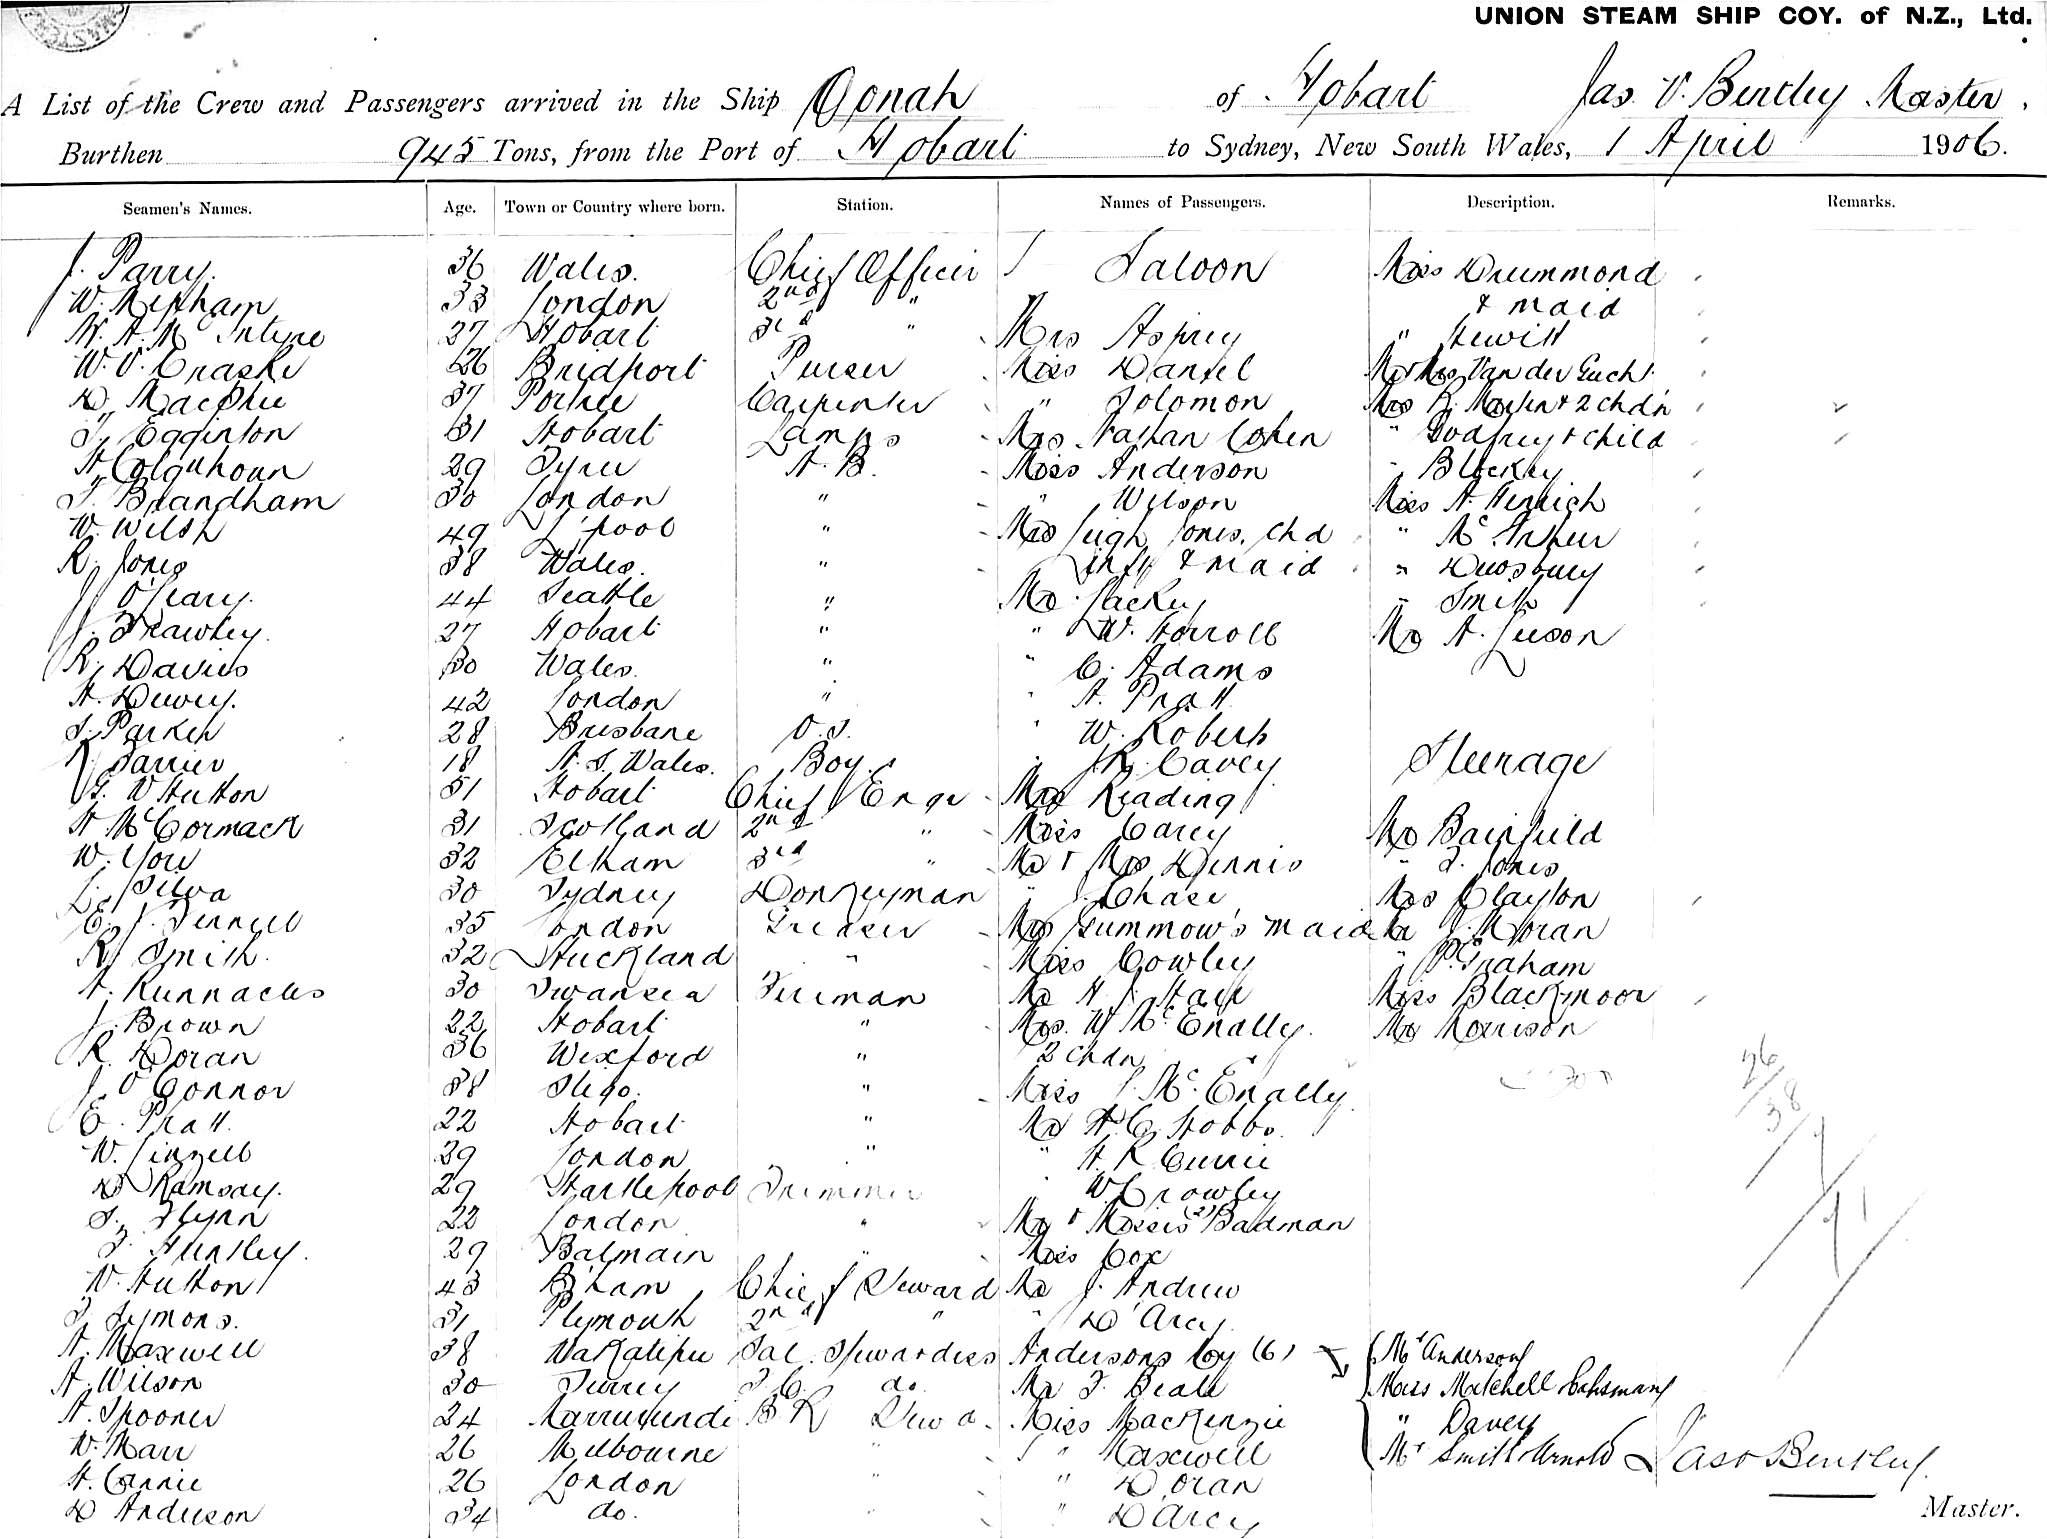 UNION STEAM SHIP COY. of N.Z., Ltd.
A List of the Crew and Passengers arrived in the Ship Oonah of Hobart Jas. V. Bentley Master.
Burthen 945 Tons, from the Port of Hobart to Sydney, New South Wales, 1 April 1906.
Seamen's Names. Age. Town or Country where born. Station. Names of Passengers. Description. Remarks.
J. Parry. 36 Wales. Chief Officer Saloon Miss Drummond
W. Mepham 33 London 2nd " & maid
27 Hobart 3rd " Mrs Asprey " Hewitt
W. V. Craske 26 Bridport Purser Miss Daniel Mr & Mrs Van der Gucht
D. MacPhee 37 Portree Carpenter " Solomon Mrs R. & 2 chdn
T. Egginton 31 Hobart Lamps Mrs Nathan Cohen " Godfrey & child
H. Colquhoun 29 Tyree A. B. Miss Anderson "
T. Brandham 30 London " " Wilson Miss A.
W. Welsh 49 L'pool " Mrs Leigh Jones, chd " McArthur
R. Jones 38 Wales. " inft & maid " Dewsbury
J. O'Leary. 44 Seattle " Mr Lackey " Smith
J. Frawley. 27 Hobart " " W. Horroll Mr A. Leeson
R. Davies 30 Wales. " " C. Adams
H. Dewey. 42 London " " A. Pratt
S. Parker 28 Brisbane O.S. " W. Roberts
18 N. S. Wales. Boy. " Cavey Steerage
G. W Hutton 51 Hobart Chief Engr Mrs Reading
H McCormack 31 Scotland 2nd " Miss Carey Mr Bairfield
W. 32 Eltham 3rd " Mr & Mrs Dennis " Jones
L. Silva 30 Sydney Donkeyman " J. Chase Mrs Clayton
E. J. Fennell 35 London Greaser Mrs Gummow's maid Mr J. Moran
R. Smith. 32 Auckland " Miss Cowley " P. Graham
A. Runnacles 30 Swansea Fireman Mr H J Hall Miss Blackmoor
J. Brown 22 Hobart " Mrs. W McEnally. Mr Morrison
R. Doran 36 Wexford " 2 chdn
J. O'Connor 38 Sligo. " Miss McEnally.
E. Pratt. 22 Hobart " Mr H. C. Hobbs.
W. Linzell 29 London " " H. R Currie
D Ramsay. 29 Hartlepool Trimmer W. Crowley
T. Flynn 22 London " Mr & Misses (2) Badman
F. Huntley. 29 Balmain " Miss Cox
W. Hutton 43 B'ham Chief Steward Mr J. Andrew
J. Symons. 31 Plymouth 2nd " " D'Arcy
A. Maxwell 38 Wakatipu Sal. Stewardess Andersons Coy (6) Mr Anderson
A. Wilson 30 Surrey F.C. do. Mr F. Beale Miss Mitchell
A. Spooner 24 Murrurundi BK Stewd. Miss MacKenzie " Davey
W. Marr 26 Melbourne " " Maxwell Mr Smith Arnold Jas V Bentley.
H. Cannie 26 London " " Doran
D Anderson 34 do. " " Darcy
Master.
26
38
7
71